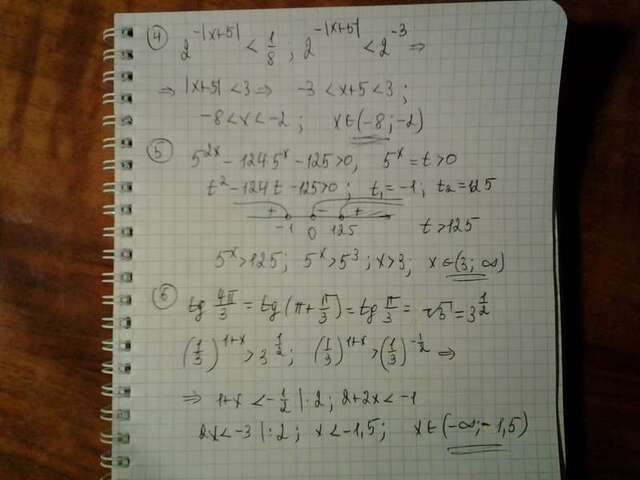 ④ 2^(-|x+5|) < 1/8 ; 2^(-|x+5|) < 2^(-3) ⇒
⇒ |x+5| < 3 ⇒ -3 < x+5 < 3 ;
-8 < x < -2 ; x ∈ (-8 ; -2)
⑤ 5^(2x) - 124·5^x - 125 > 0, 5^x = t > 0
t^2 - 124t - 125 > 0 ; t₁ = -1 ; t₂ = 125
+ - +
-1 0 125 t > 125
5^x > 125 ; 5^x > 5^3 ; x > 3 ; x ∈ (3 ; ∞)
⑥ tg 4π/3 = tg (π + π/3) = tg π/3 = √3 = 3^(1/2)
(1/3)^(1+x) > 3^(1/2) ; (1/3)^(1+x) > (1/3)^(-1/2) ⇒
⇒ 1+x < -1/2 |:2 ; 2+2x < -1
2x < -3 |:2 ; x < -1,5 ; x ∈ (-∞ ; -1,5)